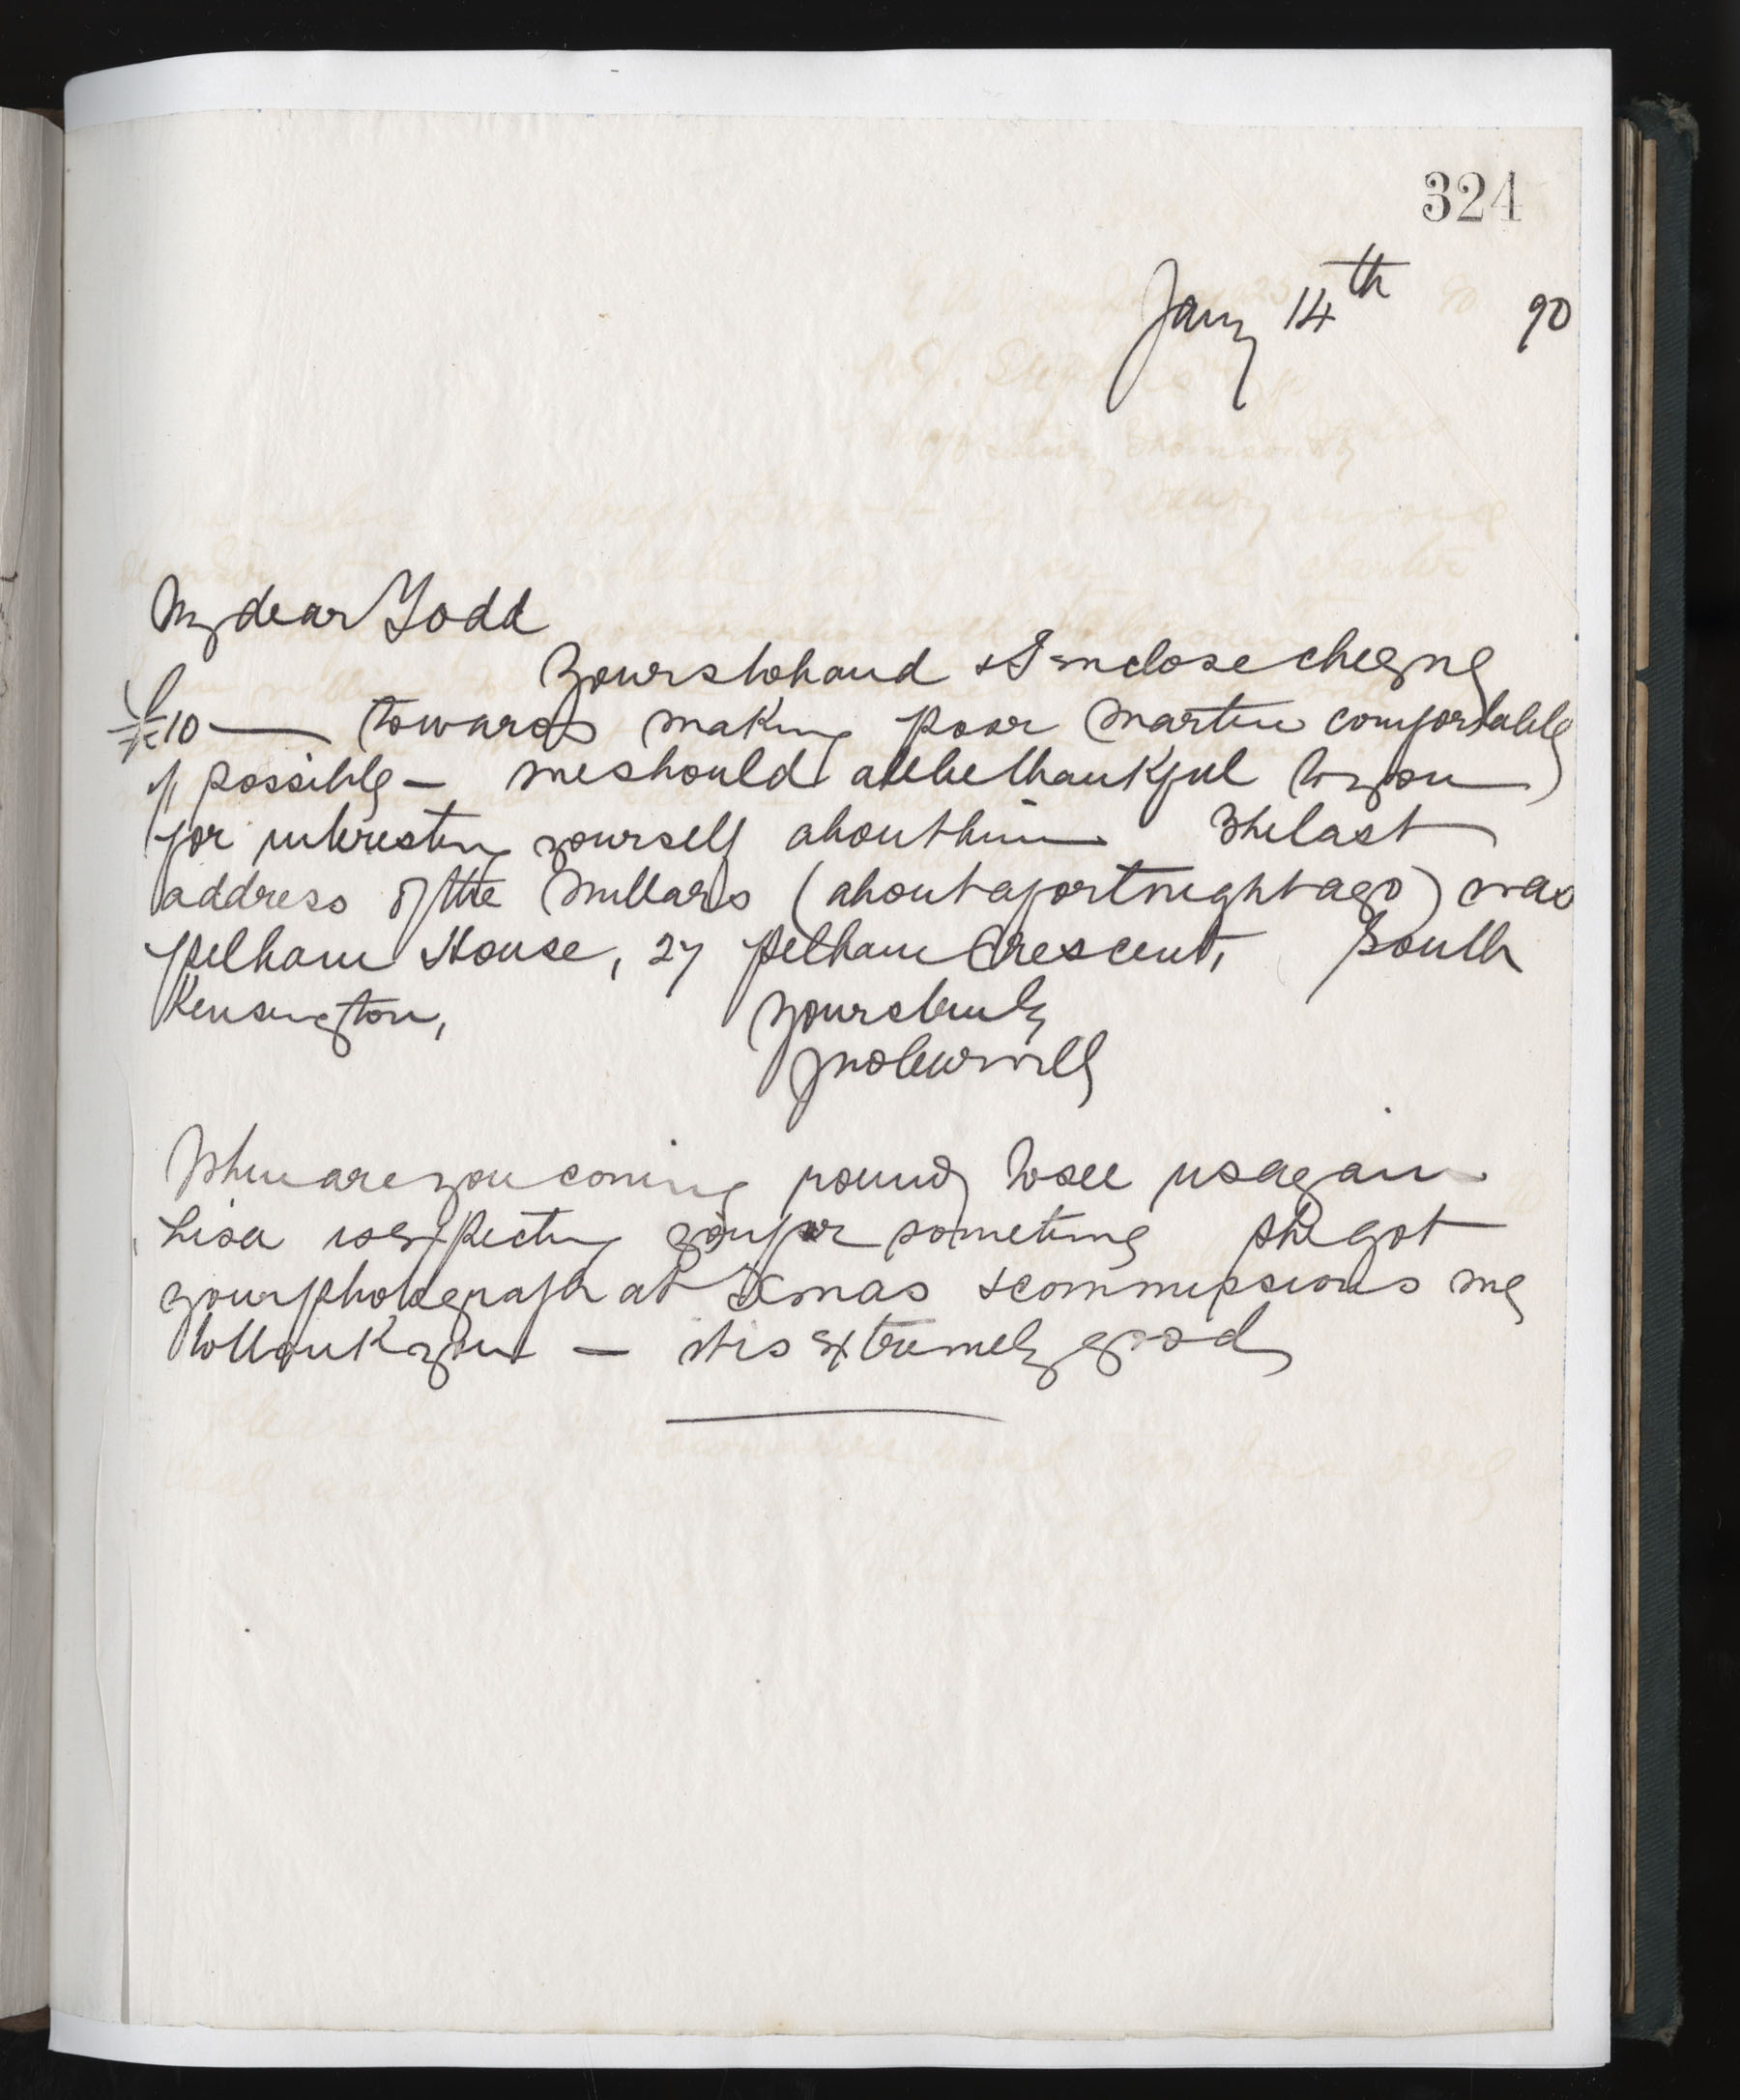 324
Jany 14th 90
My dear Todd
Yours to hand & I enclose cheque
£10 — towards making poor Martin comfortable
if possible — we should all be thankful to you
for interesting yourself about him The last
address of the Millars (about a fortnight ago) was
Pelham House, 27 Pelham Crescent, South
Kensington,
Yours truly
Jno Curwell
When are you coming round to see us again
Lisa is expecting you for sometime she got
your photograph at Xmas & commissions me
to thank you — it is extremely good